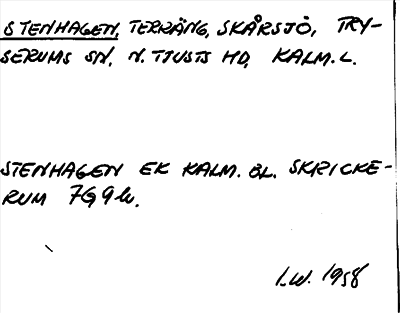 STENHAGEN, TERRÄNG, SKÅRSJÖ, TRY-
SERUMS SN, N. TJUSTS HD, KALM. L.
STENHAGEN EK KALM. BL. SKRICKE-
RUM 7G 9h.
I.W. 1958